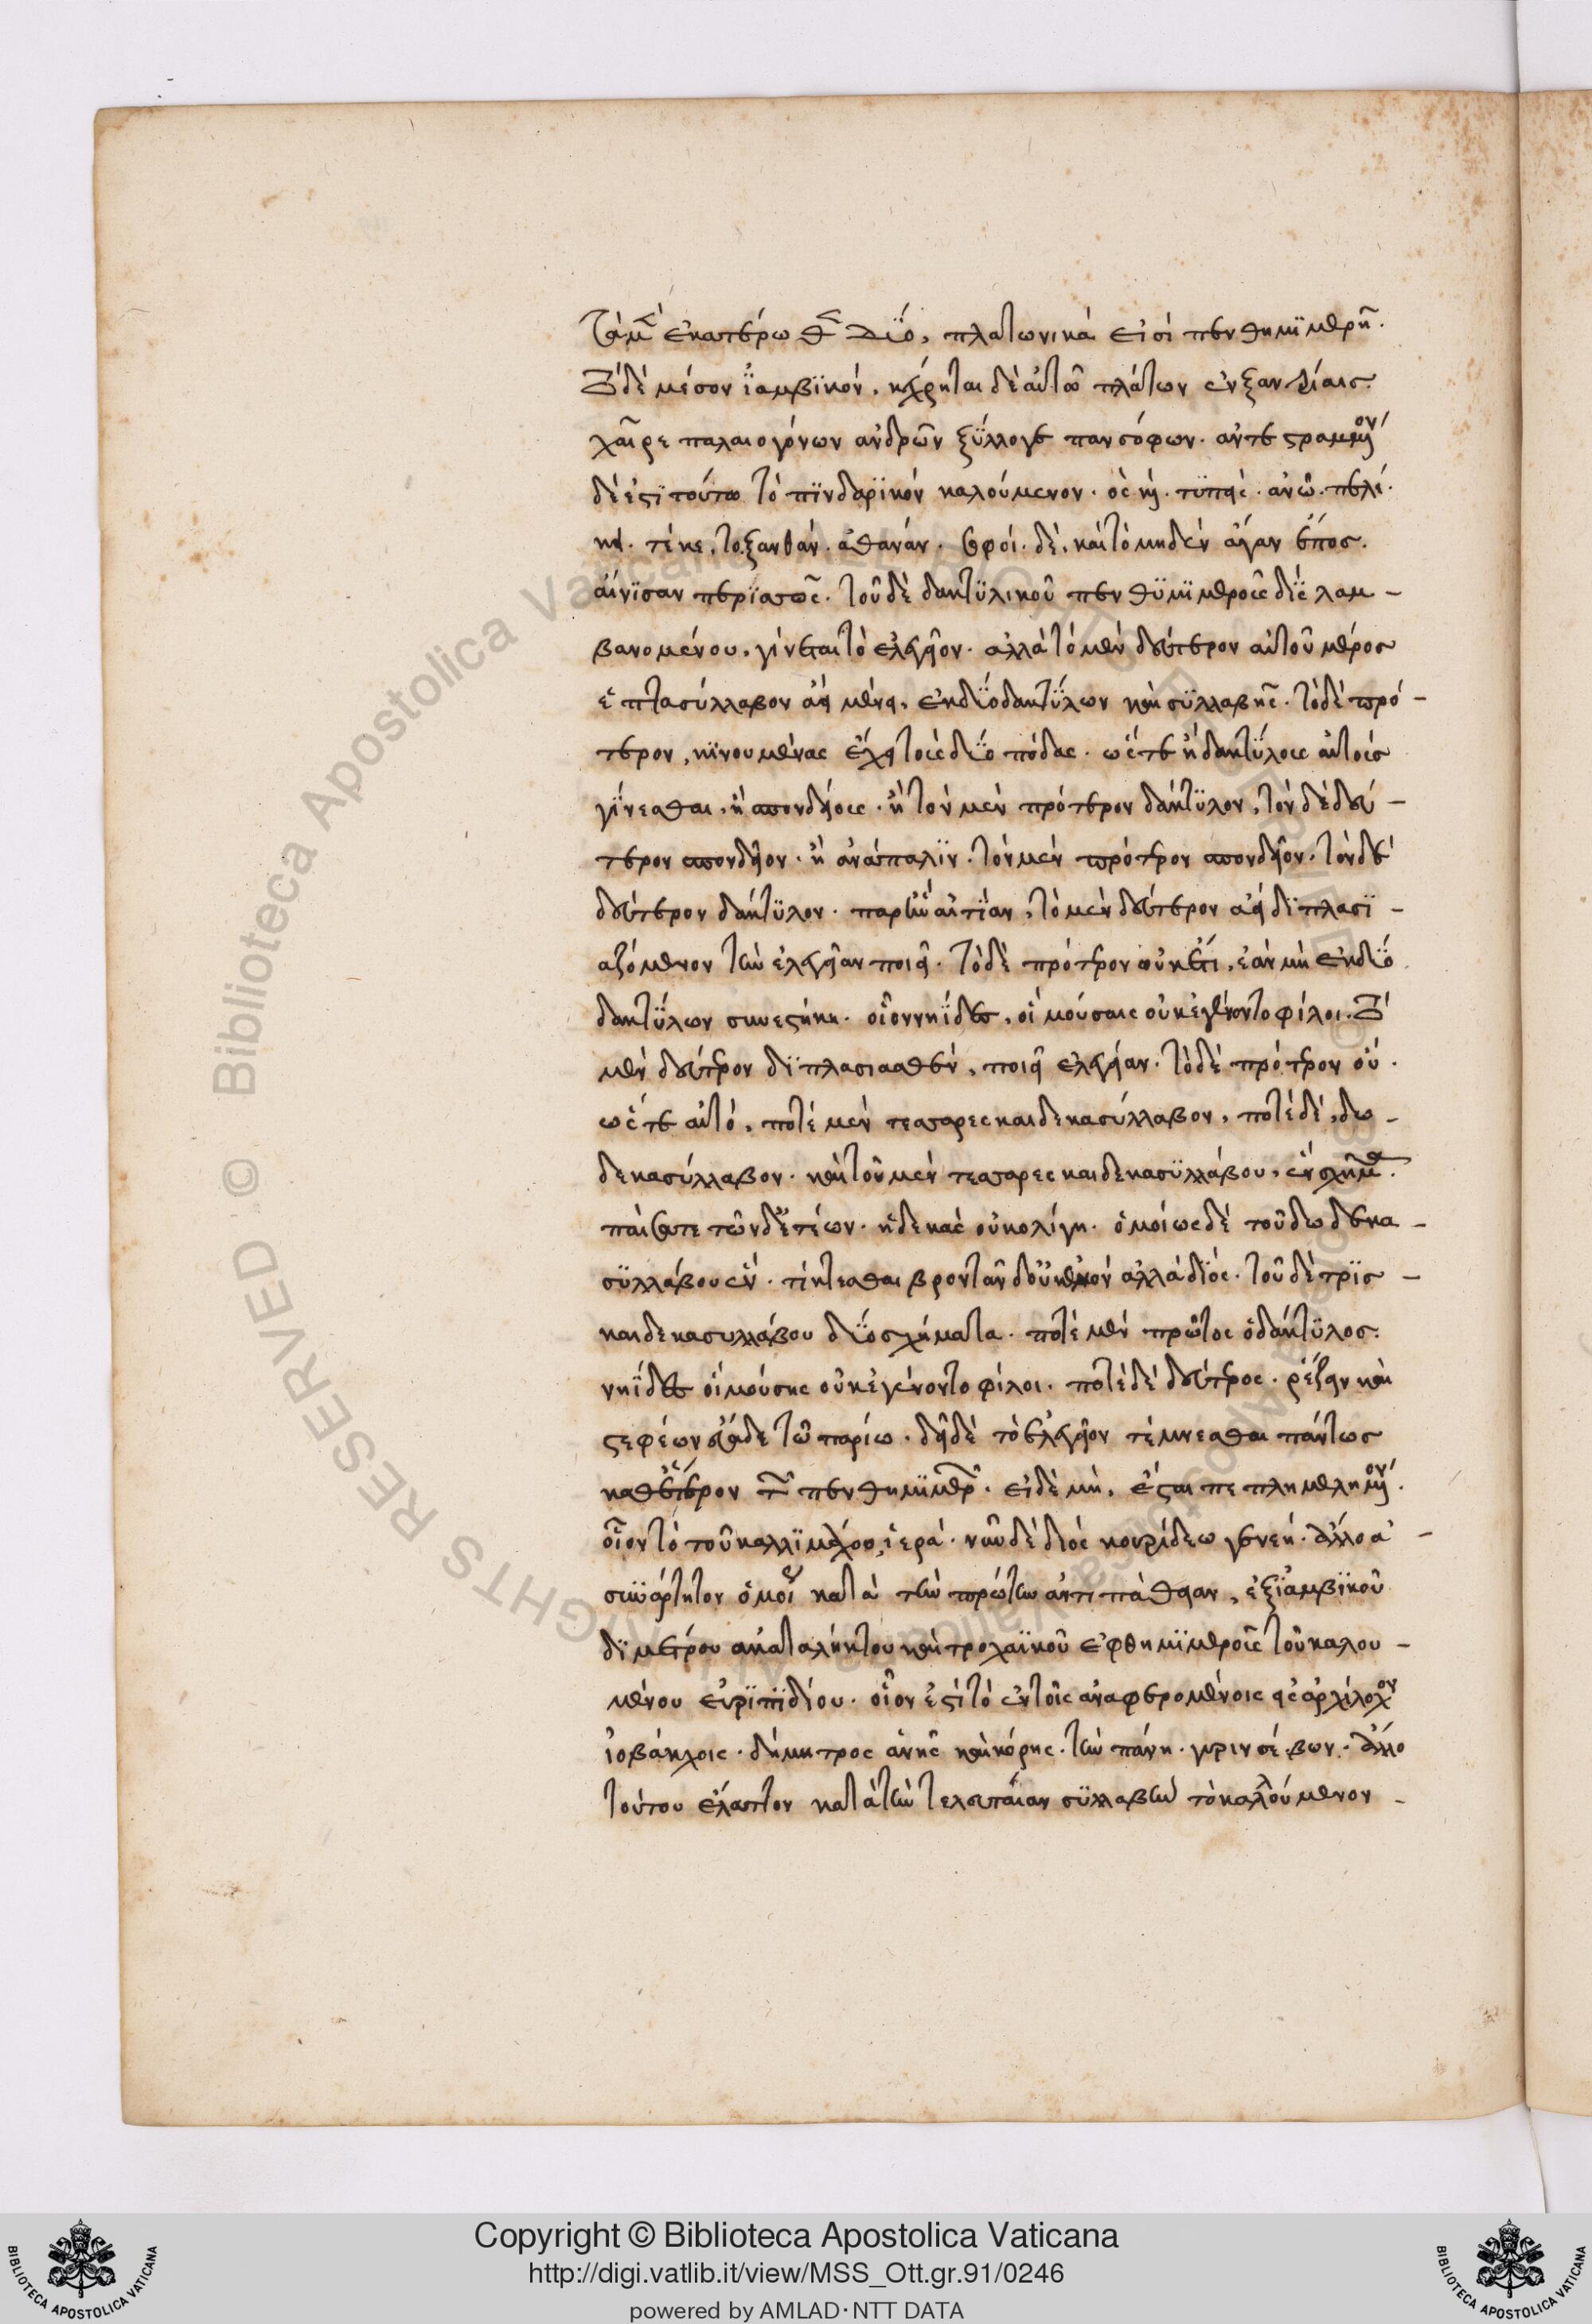 τὰ μὲν ἑκατέρωθεν δϋό, πλατωνικά εἰσί πενθημϊμερῆ.
τὸ δὲ μέσον ϊαμβϊκόν. κέχρηται δὲ αὐτῶ πλάτων ἐν ξαντρίαις.
χαῖρε παλαιογόνων ἀνδρῶν ξϋλλογε πανσόφων. ἀντεστραμμένον
δέ ἐστϊ τούτω τὸ πϊνδαρϊκόν καλούμενον. ὃς καὶ. τϋπεὶς. ἁγνῶ. πελέ.
κει. τέκε. το ξανθάν. ἀθανάν. σοφοί. δέ. καὶ τὸ μηδὲν ἄγαν ἔπος.
αἴνϊσαν περϊσσῶς. τοῦ δὲ δακτϋλικοῦ πενθϋμϊμεροῦς δϊς λαμ-
βανομένου, γίνεται τὸ ἐλεγεῖον. ἀλλὰ τὸ μὲν δεύτερον αὐτοῦ μέρος
ἑπτασύλλαβον ἀεὶ μένει, ἐκ δϋό δακτϋλων καὶ σϋλλαβῆς. τὸ δὲ πρό-
τερον, κϊνουμένας ἔχει τοὺς δϋό πόδας. ὥστε ἢ δακτϋλους αὐτοὺς
γίνεσθαι, ἢ σπονδείους. ἢ τὸν μὲν πρότερον δάκτϋλον, τὸν δὲ δεύ-
τερον σπονδεῖον. ἢ ἀνάπαλϊν. τὸν μὲν πρότερον σπονδεῖον. τὸν δὲ
δεύτερον δάκτϋλον. παρ' ἣν αἰτίαν, τὸ μὲν δεύτερον ἀεὶ δϊπλασϊ-
αζόμενον τὴν ἐλεγείαν ποιεῖ. τὸ δὲ πρότερον οὐκέτι, ἐὰν μὴ ἐκ δϋό
δακτϋλων συνεστήκη. οἷον νηΐδες, οἳ μούσαις οὐκ ἐγένοντο φίλοι. τὸ
μὲν δεύτερον δϊπλασιασθέν, ποιεῖ ἐλεγείαν. τὸ δὲ πρότερον οὔ.
ὥστε αὐτό, ποτέ μὲν τεσσαρεσκαιδεκασύλλαβον, ποτὲ δὲ, δω-
δεκασύλλαβον. καὶ τοῦ μὲν τεσσαρεσκαιδεκασϋλλάβου, ἓν σχῆμα.
ἡ δεκὰς οὐκ ολίγη. ὁμοίως δὲ τοῦ δωδεκα-
σϋλλάβου ἕν. τίκτεσθαι βροντᾶν δ' οὐκ ἐμὸν ἀλλὰ δϊός. τοῦ δὲ τρϊσ-
καιδεκασυλλάβου δϋό σχήματα. ποτὲ μὲν πρῶτος ὁ δάκτϋλος.
νηΐδες οἳ μούσης οὐκ ἐγένοντο φίλοι. ποτὲ δὲ δεύτερος. ῥέζειν καὶ
στεφέων εὔαδε τῶ παρίω. δεῖ δὲ τὸ ἐλεγεῖον τέμνεσθαι πάντως
καθ' ἕτερον τῶν πενθημϊμερῶν. εἰ δὲ μή, ἔσται πεπλημμελημένον.
οἷον τὸ τοῦ καλλϊμάχου, ἱερά. νῦν δὲ διοσκουρίδεω γενεή. ἄλλο ἀ-
σϋνάρτητον ὁμοίως κατὰ τὴν πρώτην ἀντιπάθειαν, ἐξ ϊαμβϊκοῦ
δϊμέτρου ἀκαταλήκτου καὶ τροχαϊκοῦ ἑφθημϊμεροῦς τοῦ καλου-
μένου εὐρϊπϊδίου. οἷον ἐστὶ τὸ ἐν τοῖς ἀναφερομένοις εἰς ἀρχίλοχον
ἰοβάκχοις. δήμητρος ἁγνῆς καὶ κόρης. τὴν πάνη. γυριν σέ. βων. ἄλλο
τούτου ἔλαττον κατὰ τὴν τελευταίαν σϋλλαβὴν τὸ καλούμενον -